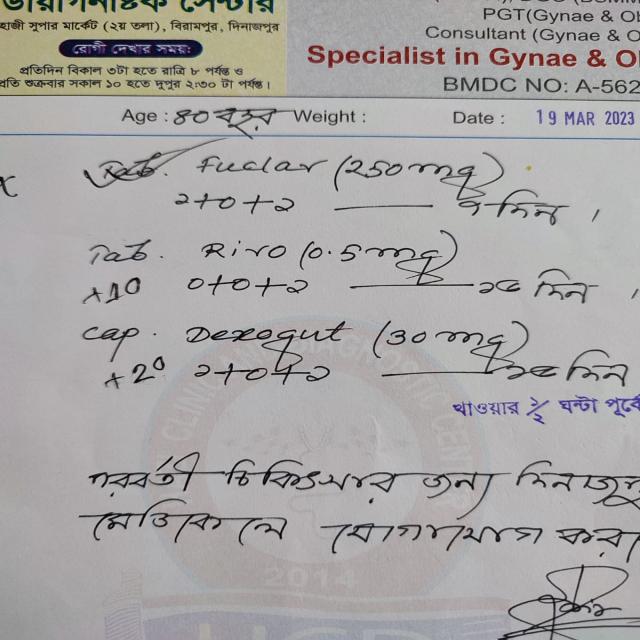 ডায়াগনস্টিক সেন্টার
হাজী সুপার মার্কেট (২য় তলা), বিরামপুর, দিনাজপুর
রোগী দেখার সময়:
প্রতিদিন বিকাল ৩টা হতে রাত্রি ৮ পর্যন্ত ও
প্রতি শুক্রবার সকাল ১০ হতে দুপুর ২:৩০ টা পর্যন্ত।
PGT(Gynae & Ob
Consultant (Gynae & O
Specialist in Gynae & Ob
BMDC NO: A-562
Age : ৪০ বছর Weight : Date : 19 MAR 2023
Tab. Fuclav (250mg)
১+০+১ — ৭ দিন ।
Tab. Rivo (0.5mg)
x10 ০+০+১ — ১৫ দিন ।
Cap. Dexogut (30mg)
x20 ১+০+১ — ১৫ দিন
খাওয়ার ১/২ ঘন্টা পূর্বে
পরবর্তী চিকিৎসার জন্য দিনাজপু
মেডিকেলে যোগাযোগ করা
CLINIC AND DIAGNOSTIC CENTER
2014